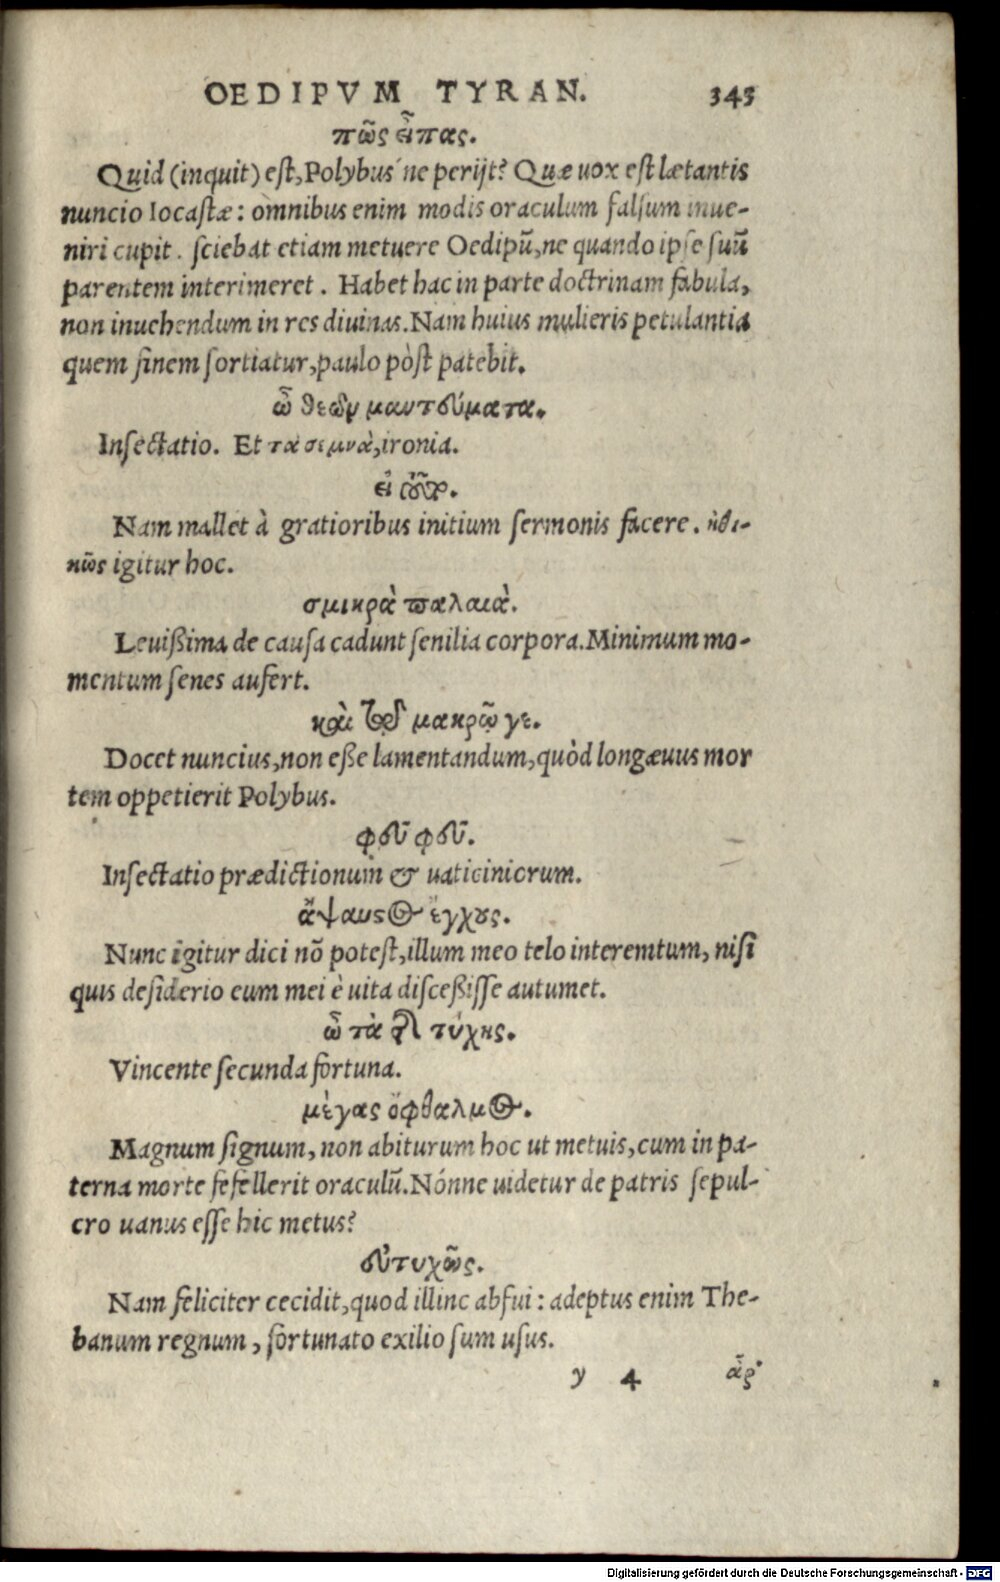 OEDIPVM TYRAN. 343
πῶς εἶπας.
Quid (inquit) est, Polybus'ne perijt? Quæ uox est lætantis
nuncio Iocastæ: omnibus enim modis oraculum falsum inue-
niri cupit. sciebat etiam metuere Oedipũ, ne quando ipse suũ
parentem interimeret. Habet hac in parte doctrinam fabula,
non inuehendum in res diuinas. Nam huius mulieris petulantia
quem finem sortiatur, paulo pòst patebit.
ὦ θεῶν μαντεύματα.
Insectatio. Et τὰ σεμνὰ, ironia.
εἰ οὖν.
Nam mallet à gratioribus initium sermonis facere. ἠθι-
κῶς igitur hoc.
σμικρὰ παλαιὰ.
Leuißima de causa cadunt senilia corpora. Minimum mo-
mentum senes aufert.
καὶ τῷ μακρῷ γε.
Docet nuncius, non eße lamentandum, quòd longæuus mor
tem oppetierit Polybus.
φεῦ φεῦ.
Insectatio prædictionum & uaticiniorum.
ἄψαυςος ἔγχους.
Nunc igitur dici nõ potest, illum meo telo interemtum, nisi
quis desiderio eum mei è uita disceßisse autumet.
ᾧ τὰ τῆς τύχης.
Vincente secunda fortuna.
μέγας ὀφθαλμος.
Magnum signum, non abiturum hoc ut metuis, cum in pa-
terna morte fefellerit oraculũ. Nónne uidetur de patris sepul-
cro uanus esse hic metus?
εὐτυχῶς.
Nam feliciter cecidit, quod illinc abfui: adeptus enim The-
banum regnum, fortunato exilio sum usus.
y 4 ἆρ'
Digitalisierung gefördert durch die Deutsche Forschungsgemeinschaft - DFG